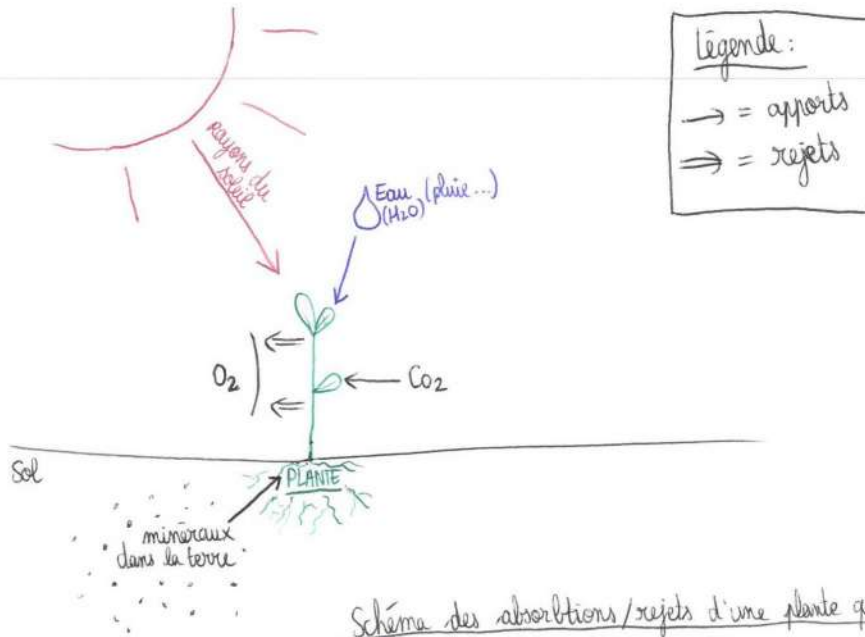 Légende :
→ = apports
⇒ = rejets
rayons du
soleil
Eau (pluie...)
(H2O)
O2
CO2
Sol
PLANTE
minéraux
dans la terre
Schéma des absorbtions/rejets d'une plante